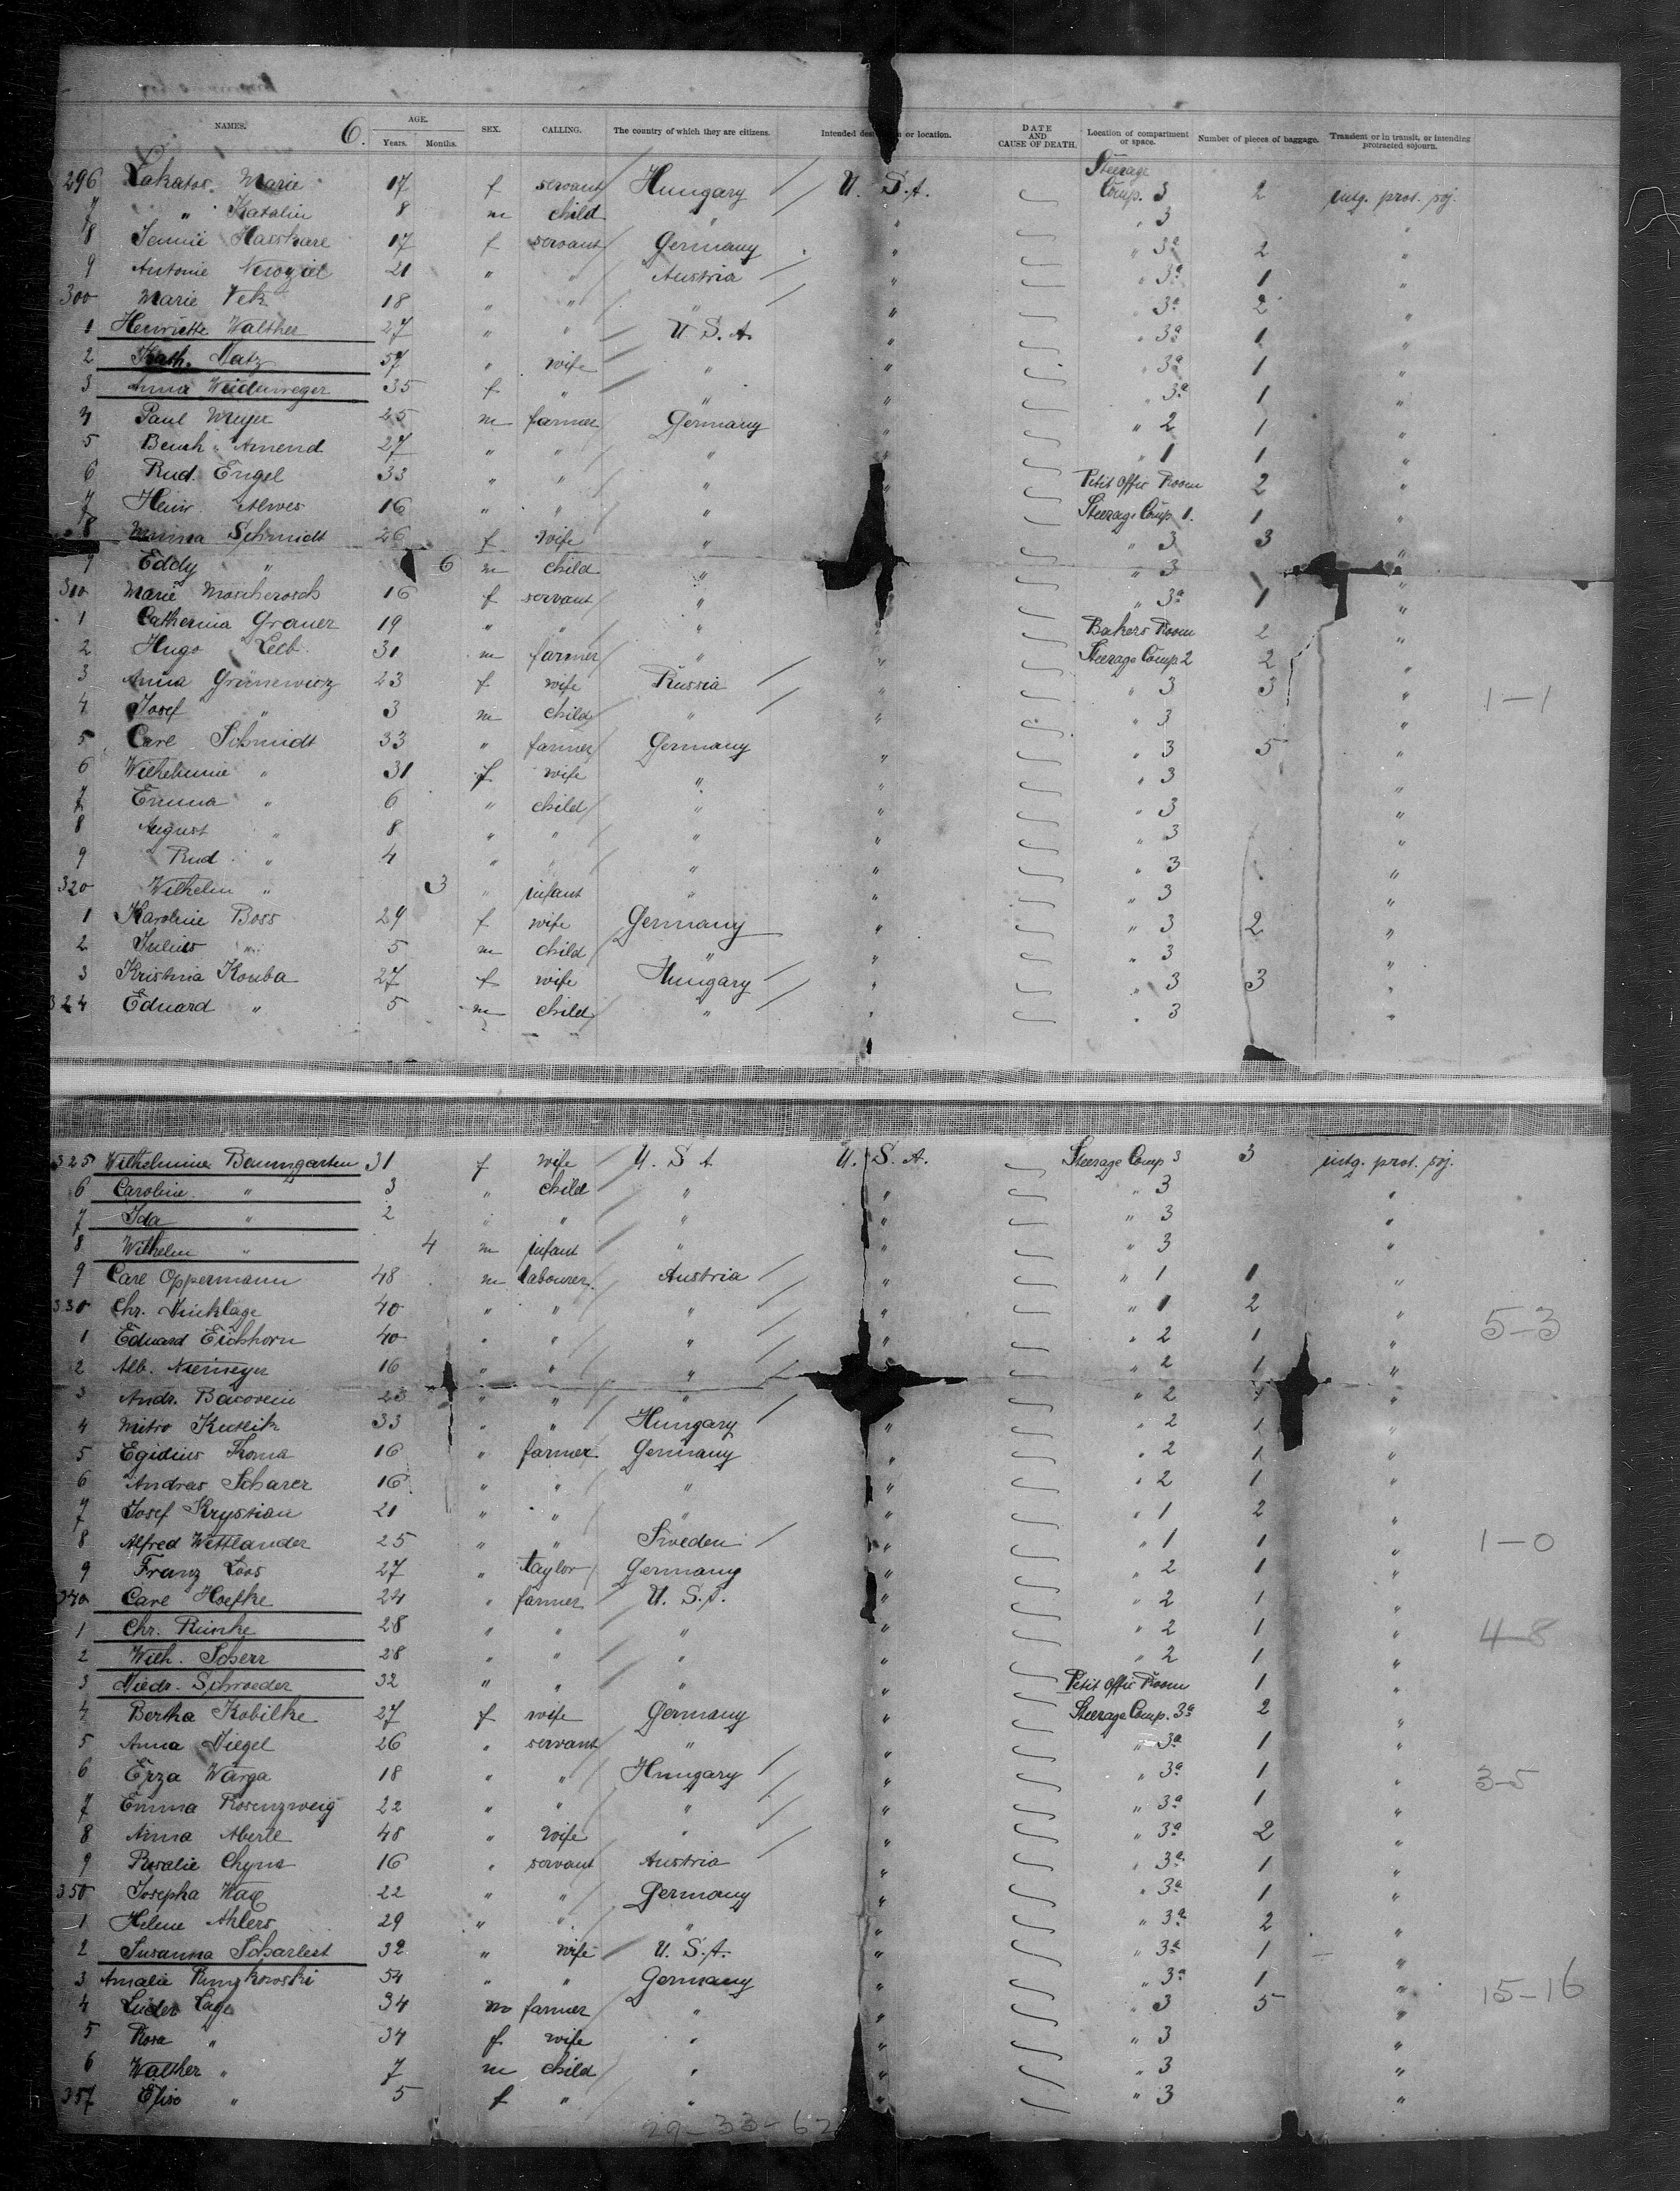 NAMES. 6. AGE. Years. Months. SEX. CALLING. The country of which they are citizens. Intended des n or location. DATE AND CAUSE OF DEATH. Location of compartment or space. Number of pieces of baggage. Transient or in transit, or intending protracted sojourn.
296 Lakatos Marie 17 f servant Hungary U. S. A. Steerage Comp. 3 2 intg. prot. soj.
7 " Katalin 8 m child " " " 3 "
8 Jennie 17 f servant Germany " " 3a 2 "
9 Antonie 21 " " Austria " " 3a 1 "
300 Marie Vek 18 " " " " " 3a 2 "
1 Henriette Walther 27 " " U. S. A. " " 3a 1 "
2 Kath. Matz 57 " wife " " " 3a 1 "
3 Anna Weidenweger 35 f " " " " 3a 1 "
4 Paul Meyer 25 m farmer Germany " " 2 1 "
5 Amend 27 " " " " " 1 1 "
6 Rud. Engel 33 " " " " Petit Offic Room 2 "
7 Heinr. Alwes 16 " " " Steerage Comp 1. 1 "
8 Minna Schmidt 26 f wife " " 3 3 "
9 Eddy " 6 m child " " 3 "
310 Marie Moscherosch 16 f servant " " 3a 1 "
1 Catherina Grauer 19 " " " Bakers Room 2 "
2 Hugo Leib 31 m farmer " " Steerage Comp 2 2 "
3 Anna Grünewicz 23 f wife Russia " " 3 3 " 1-1
4 Josef " 3 m child " " " 3 "
5 Carl Schmidt 33 " farmer Germany " " 3 5 "
6 Wilhelmine " 31 f wife " " " 3 "
7 Emma " 6 " child " " " 3 "
8 August " 8 " " " " " 3 "
9 Rud. " 4 " " " " " 3 "
320 Wilhelm " 3 " infant " " " 3 "
1 Karoline Boss 29 f wife Germany " " 3 2 "
2 Julius " 5 m child " " " 3 "
3 Kristina Kouba 27 f wife Hungary " " 3 3 "
324 Eduard " 5 m child " " " 3 "
325 Wilhelmine Baumgarten 31 f wife U. S. A. U. S. A. Steerage Comp 3 3 intg. prot. soj.
6 Caroline " 3 " child " " " 3 "
7 Ida " 2 " " " " " 3 "
8 Wilhelm " 4 m infant " " " 3 "
9 Carl Oppermann 48 m labourer Austria " " 1 1 "
330 Chr. Dinklage 40 " " " " " 1 2 " 5-3
1 Eduard Eichhorn 40 " " " " " 2 1 "
2 Alb. Niemeyer 16 " " " " 2 1 "
3 Andr. 23 " " " " 2 1 "
4 Mitro Kutlik 33 " " Hungary " " 2 1 "
5 Egidius Thoma 16 " farmer Germany " " 2 1 "
6 Andreas Scharer 16 " " " " " 2 1 "
7 Josef Kryssian 21 " " " " " 1 2 "
8 Alfred Wettlander 25 " " Sweden " " 1 1 " 1-0
9 Franz Loos 27 " taylor Germany " " 2 1 "
340 Carl Hoefke 24 " farmer U. S. A. " " 2 1 "
1 Chr. Rimke 28 " " " " " 2 1 " 4-8
2 Wilh. Scherr 28 " " " " " 2 1 "
3 Diedr. Schroeder 32 " " " " Petit Offic Room 1 "
4 Bertha Kobilke 27 f wife Germany " Steerage Comp. 3a 2 "
5 Anna Diegel 26 " servant " " " 3a 1 "
6 Erza Warga 18 " " Hungary " " 3a 1 " 3-5
7 Emma Rosenzweig 22 " " " " " 3a 1 "
8 Anna Aberle 48 " wife " " " 3a 2 "
9 Rosalie Chyna 16 " servant Austria " " 3a 1 "
350 Josepha Wax 22 " " Germany " " 3a 1 "
1 Helene Ahlers 29 " " " " " 3a 2 "
2 Susanna Scharlest 32 " wife U. S. A. " " 3a 1 "
3 Amalie Rumzkowski 54 " " Germany " " 3a 1 " 15-16
4 Lüder Lage 34 m farmer " " " 3 5 "
5 Rosa " 34 f wife " " " 3 "
6 Walther " 7 m child " " " 3 "
357 Elise " 5 f " " " " 3 "
29-33-62